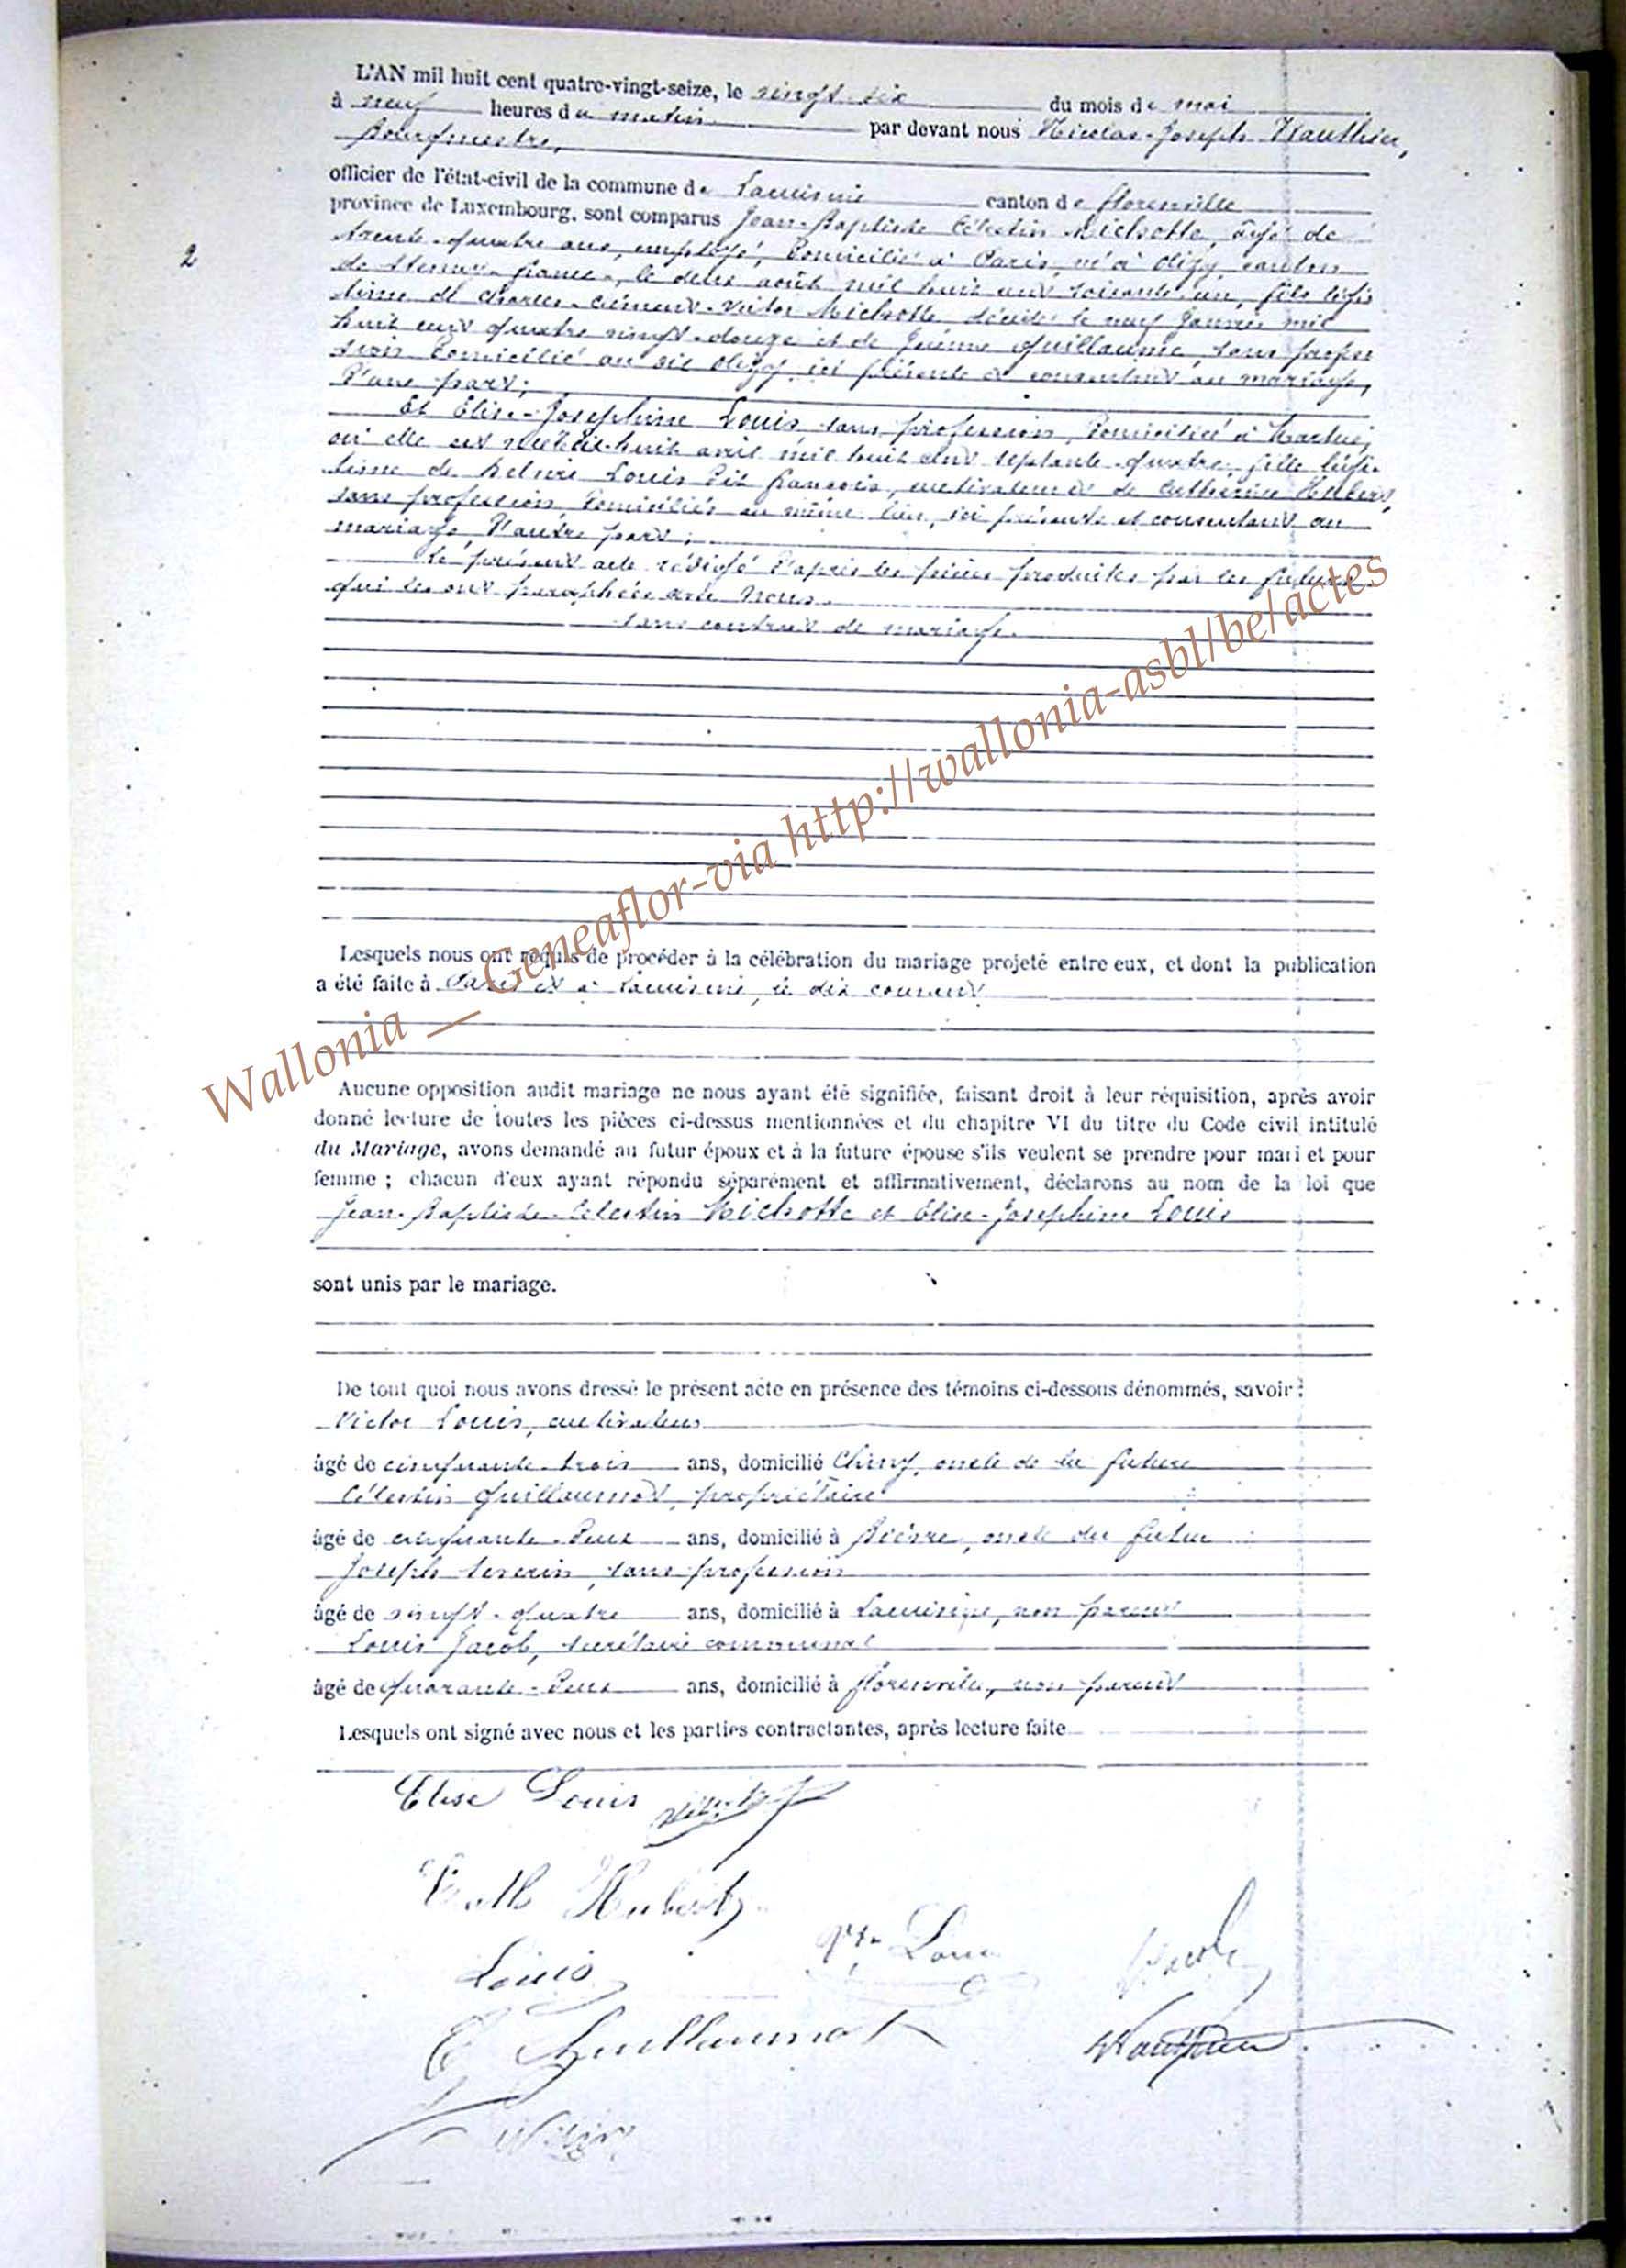 L'AN mil huit cent quatre-vingt-seize, le vingt-six du mois de mai
à neuf heures du matin par devant nous Nicolas-Joseph Wauthier,
Bourgmestre,
officier de l'état-civil de la commune de Lacuisine canton de florenville
province de Luxembourg, sont comparus Jean-Baptiste Célestin Michotte, âgé de
2
trente-quatre ans, employé, domicilié à Paris, né à Olizy, canton
de Stenay-france-, le deux août mil huit cent soixante-un, fils légi-
time de Charles-Clément-Victor Michotte décédé le neuf Janvier mil
huit cent quatre vingt-douze et de Guillaume, sans profes
sion domicilié au dit Olizy, ici présente et consentant au mariage,
D'une part;
Et Elise-Joséphine Louis sans profession, domiciliée à Martué,
où elle est née le dix-huit avril mil huit cent septante-quatre, fille légi-
time de Louis dit françois, cultivateur et de Cathérine Hubert,
sans profession, domiciliés au même lieu, ici présents et consentant au
mariage, D'autre part;
Le présent acte rédigé d'après les pièces produites par les futurs
qui les ont paraphées avec Nous.
sans contrat de mariage.
Lesquels nous ont requis de procéder à la célébration du mariage projeté entre eux, et dont la publication
a été faite à Paris et à Lacuisine, le dix courant
Aucune opposition audit mariage ne nous ayant été signifiée, faisant droit à leur réquisition, après avoir
donné lecture de toutes les pièces ci-dessus mentionnées et du chapitre VI du titre du Code civil intitulé
du Mariage, avons demandé au futur époux et à la future épouse s'ils veulent se prendre pour mari et pour
femme ; chacun d'eux ayant répondu séparément et affirmativement, déclarons au nom de la loi que
Jean-Baptiste-Célestin Michotte et Elise-Joséphine Louis
sont unis par le mariage.
De tout quoi nous avons dressé le présent acte en présence des témoins ci-dessous dénommés, savoir :
Victor Louis, cultivateur
âgé de cinquante-trois ans, domicilié Chiny, oncle de la future
Célestin Guillaumot, propriétaire
âgé de cinquante-deux ans, domicilié à Bièvre, oncle du futur
Joseph sans profession
âgé de vingt-quatre ans, domicilié à Lacuisine, non parent
Louis Jacob, secrétaire communal
âgé de quarante-deux ans, domicilié à florenville, non parent
Lesquels ont signé avec nous et les parties contractantes, après lecture faite
Elise Louis
Hubert
Louis
Louis
Jacob
Guillaumot
Wauthier
Wallonia __ Geneaflor-via http://wallonia-asbl/be/actes